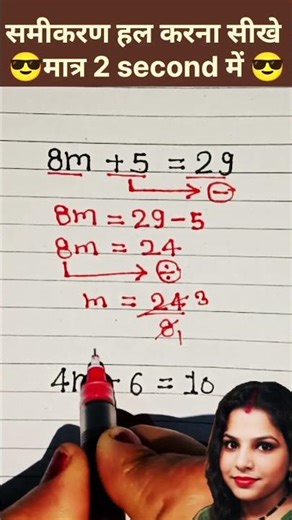 समीकरण हल करना सीखे
😎मात्र 2 second में 😎
8m + 5 = 29
→ ⊖
8m = 29 - 5
8m = 24
→ ⊕
m = 24 3
8 1
6 = 10